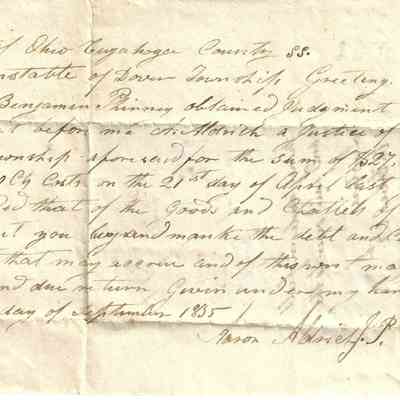 of Ohio Cuyahoga County SS.
nstable of Dover Township Greeting.
Benjamin Phinney obtained Judgment
before me A. Aldrich a Justice of
ownship aforesaid for the sum of $27,
Costs on the 21st day of April last
ed that of the Goods and Chattels of
you levy and make the debt and C
that may accrue and of this writ ma
nd due return Given under my han
day of September 1835
Aaron Aldrich J.P.